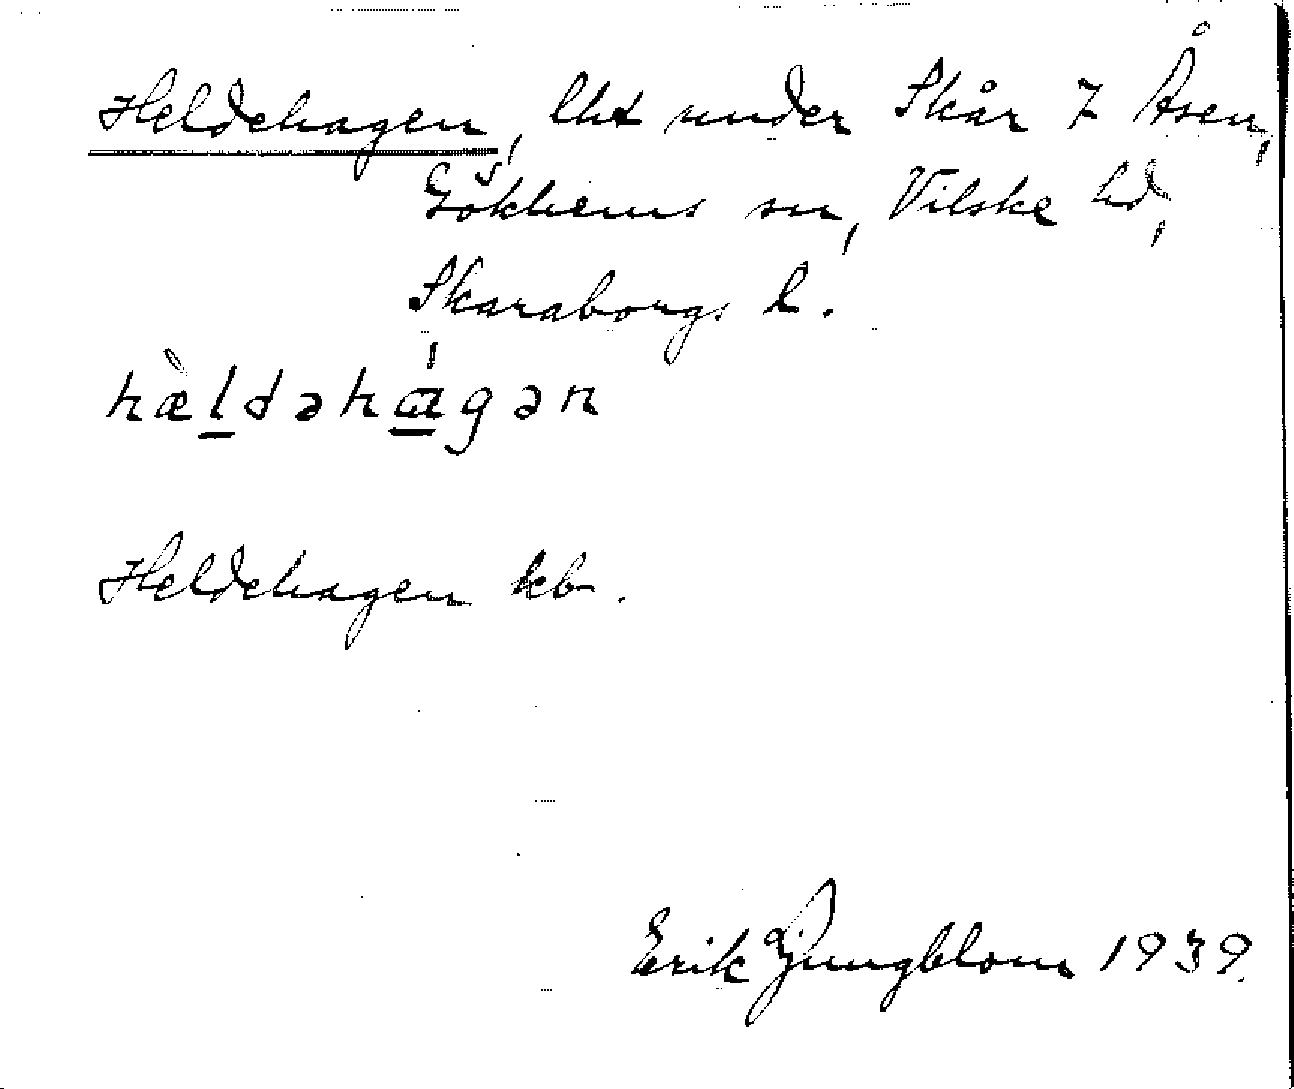 Heldehagen, lht under Skår 7 Åsen,
Gökhems sn, Vilske hd,
Skaraborgs l.
hæ̀ldəhá̱gən
Heldehagen kb.
Erik Ljungblom 1939.